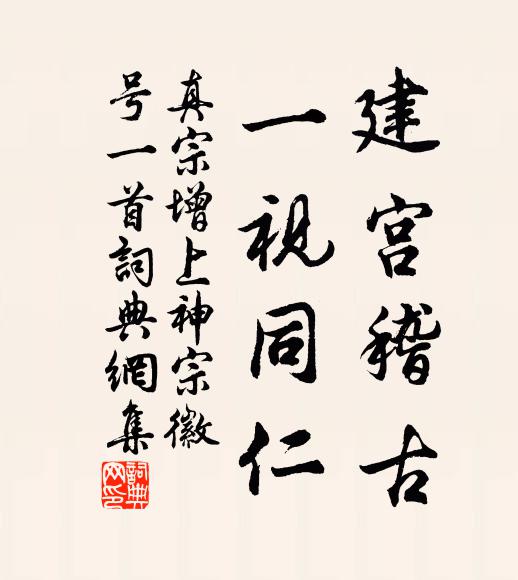 建宫稽古
一视同仁
真宗增上神宗徽
号一首詞典網集
詞典
网印